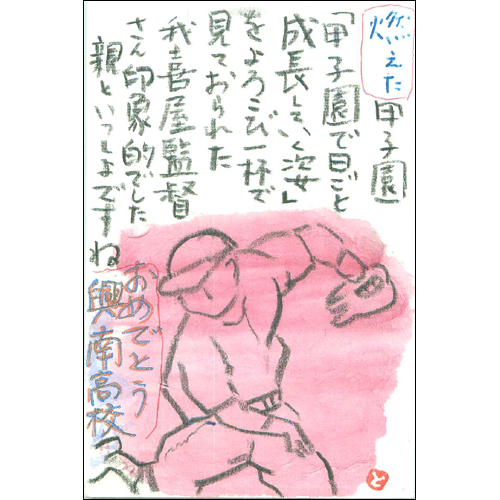 燃えた甲子園
「甲子園で日ごと
成長していく姿」
をよろこび一杯で
見ておられた
我喜屋監督
さん印象的でした
親といっしょですね
おめでとう
興南高校
と